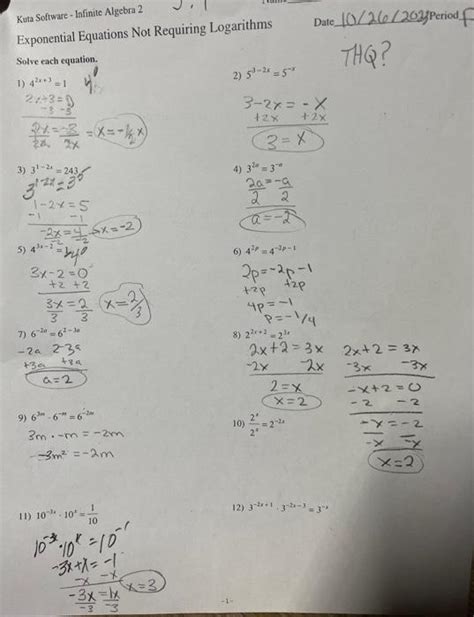 Kuta Software - Infinite Algebra 2
Exponential Equations Not Requiring Logarithms
Date 10/26/2023 Period
THQ?
Solve each equation.
1) 4^(2x+3) = 1
4^0
2x+3=0
-3 -3
2x = -3
x = -1½
2) 5^(3-2x) = 5^(-x)
3-2x = -x
+2x +2x
3 = x
3) 3^(1-2x) = 243
3^(1-2x) = 3^5
1-2x = 5
-1 -1
-2x = 4
-2 -2
x = -2
4) 3^(2a) = 3^(-a)
2a = -a
2 2
a = -2
5) 4^(3x-2) = 1
4^0
3x-2 = 0
+2 +2
3x = 2
3 3
x = 2/3
6) 4^(2p) = 4^(-2p-1)
2p = -2p-1
+2p +2p
4p = -1
p = -1/4
7) 6^(-2a) = 6^(2-3a)
-2a 2-3a
+3a +3a
a = 2
8) 2^(2x+2) = 2^(3x)
2x+2 = 3x
-2x -2x
2 = x
x = 2
2x+2 = 3x
-3x -3x
-x+2 = 0
-2 -2
-x = -2
-x -x
x=2
9) 6^(3m) · 6^(-m) = 6^(-2m)
3m · -m = -2m
-3m² = -2m
10) 2^x / 2^x = 2^(-2x)
11) 10^(-3x) · 10^x = 1/10
10^(-3x) · 10^x = 10^(-1)
-3x+x = -1
-x -x
-3x = 1x
-3 -3
x = 3
12) 3^(-2x+1) · 3^(-2x-3) = 3^(-x)
-1-